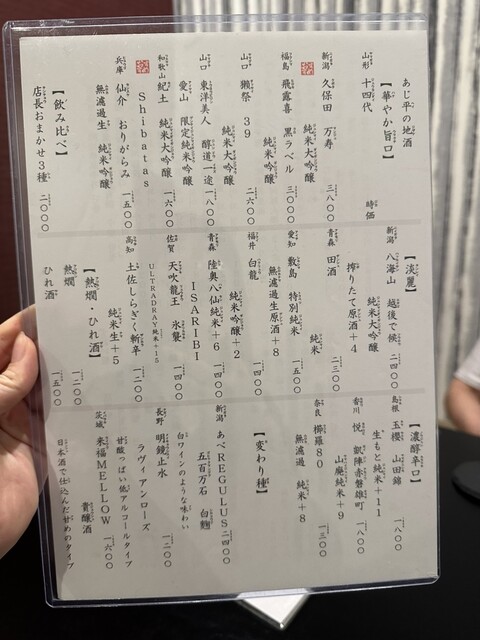 あじ平の地酒
【華やか旨口】
山形 十四代
時価
新潟 久保田 万寿
純米大吟醸 三八〇〇
福島 飛露喜 黒ラベル
純米吟醸 三〇〇〇
山口 獺祭 39
純米大吟醸 二六〇〇
山口 東洋美人 醇道一途
愛山 限定純米吟醸 一八〇〇
和歌山 紀土 純米大吟醸
Shibatas 一六〇〇
兵庫 仙介 おりがらみ
無濾過生 純米吟醸 一五〇〇
【飲み比べ】
店長おまかせ3種 二〇〇〇
【淡麗】
新潟 八海山 越後で候
純米大吟醸 二四〇〇
搾りたて原酒+4
青森 田酒
純米 二三〇〇
愛知 敷島 特別純米
無濾過生原酒+8 一五〇〇
福井 白龍
純米吟醸+2 一四〇〇
青森 陸奥八仙 純米+6
ISARIBI 一四〇〇
佐賀 天吹 龍王 氷袋
ULTRADRAY 純米+15 一四〇〇
高知 土佐しらぎく 新卒
純米生+5 一二〇〇
【熱燗・ひれ酒】
熱燗 一二〇〇
ひれ酒 一五〇〇
【濃醇辛口】
島根 玉櫻 山田錦
生もと純米+11 一八〇〇
香川 悦 凱陣 赤磐雄町
山廃純米+9 一八〇〇
奈良 櫛羅80
無濾過 純米+8 一三〇〇
【変わり種】
新潟 あべREGULUS
五百万石 白麹 二四〇〇
白ワインのような味わい
長野 明鏡止水
ラヴィアンローズ 一二〇〇
甘酸っぱい低アルコールタイプ
茨城 来福MELLOW
貴醸酒 一六〇〇
日本酒で仕込んだ甘めのタイプ